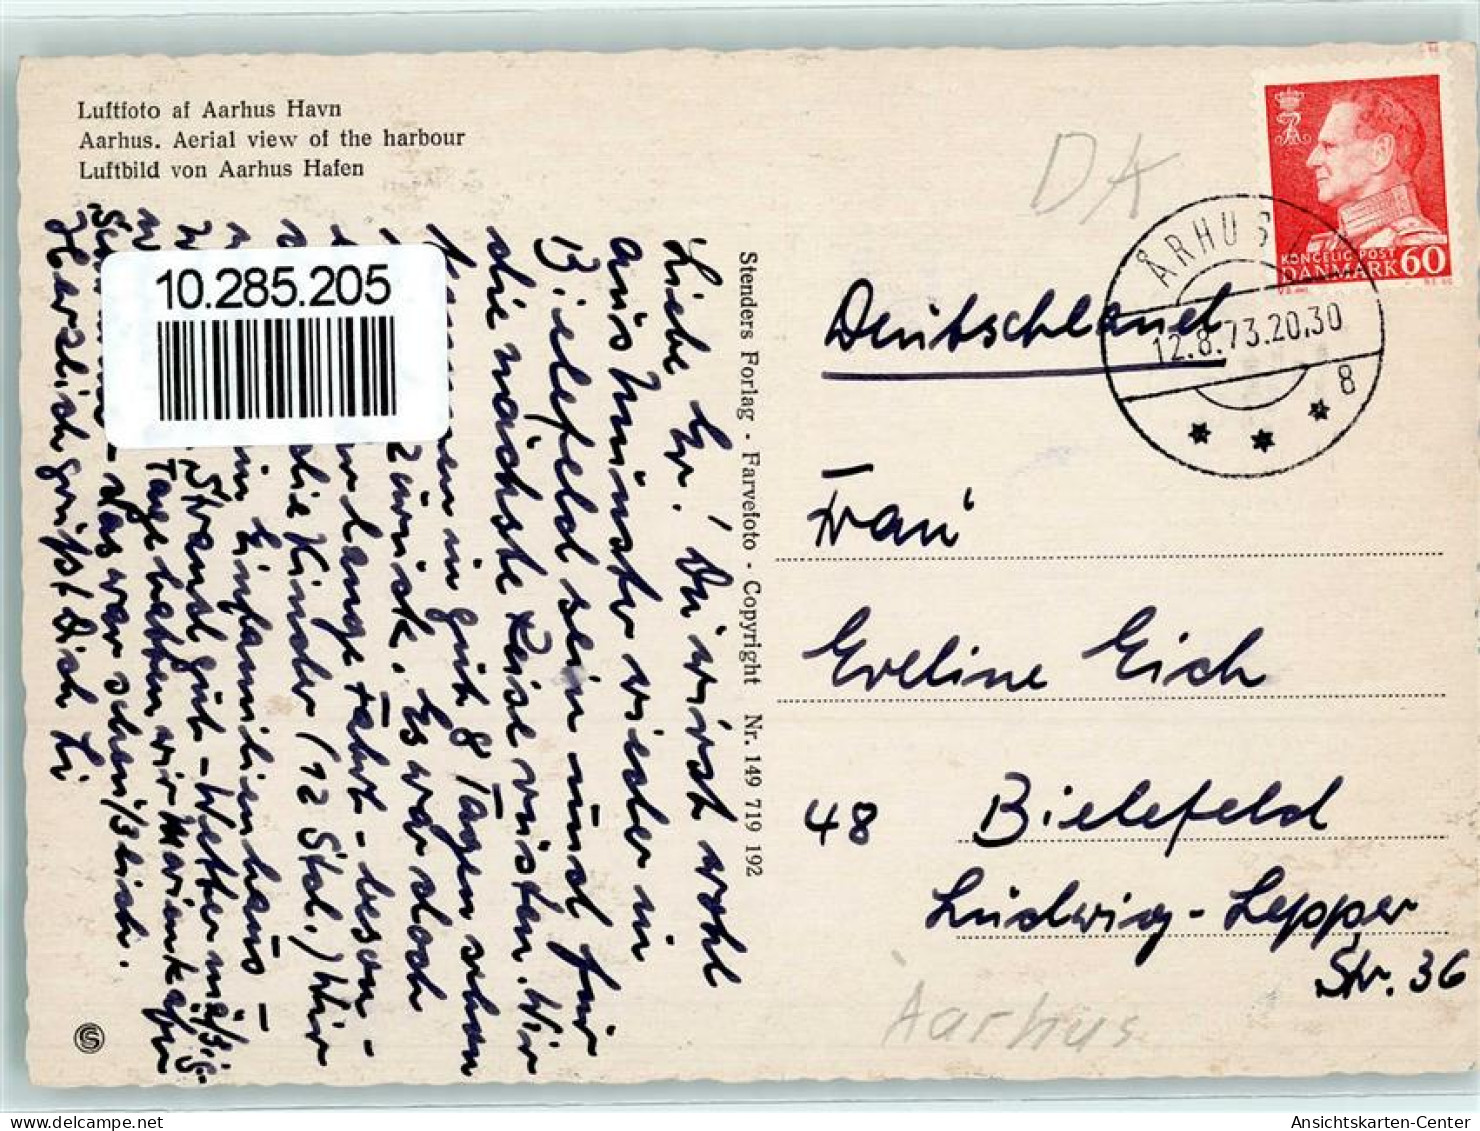 Luftfoto af Aarhus Havn
Aarhus. Aerial view of the harbour
Luftbild von Aarhus Hafen
10.285.205
Liebe Ev.! Du wirst wohl
aus Münster wieder in
Bielefeld sein und für
die nächste Reise rüsten. Wir
kommen in gut 8 Tagen schon
zurück. Es war doch
lange Fahrt - beson-
die Kinder (12 Std.) Wir
Einfamilienhaus -
Strand gut - Wetter mäßig
Tage hatten wir
- das war schön!
Herzlich grüßt Dich
Stenders Forlag - Farvefoto - Copyright Nr. 149 719 192
DK
KONGELIG POST
DANMARK 60
ÅRHUS
12.8.73.20,30
8
Deutschland
Frau
Eveline Eich
48 Bielefeld
Ludwig-Lepper
Str. 36
Aarhus
www.ansichtskartenversand.com
Ansichtskarten-Center